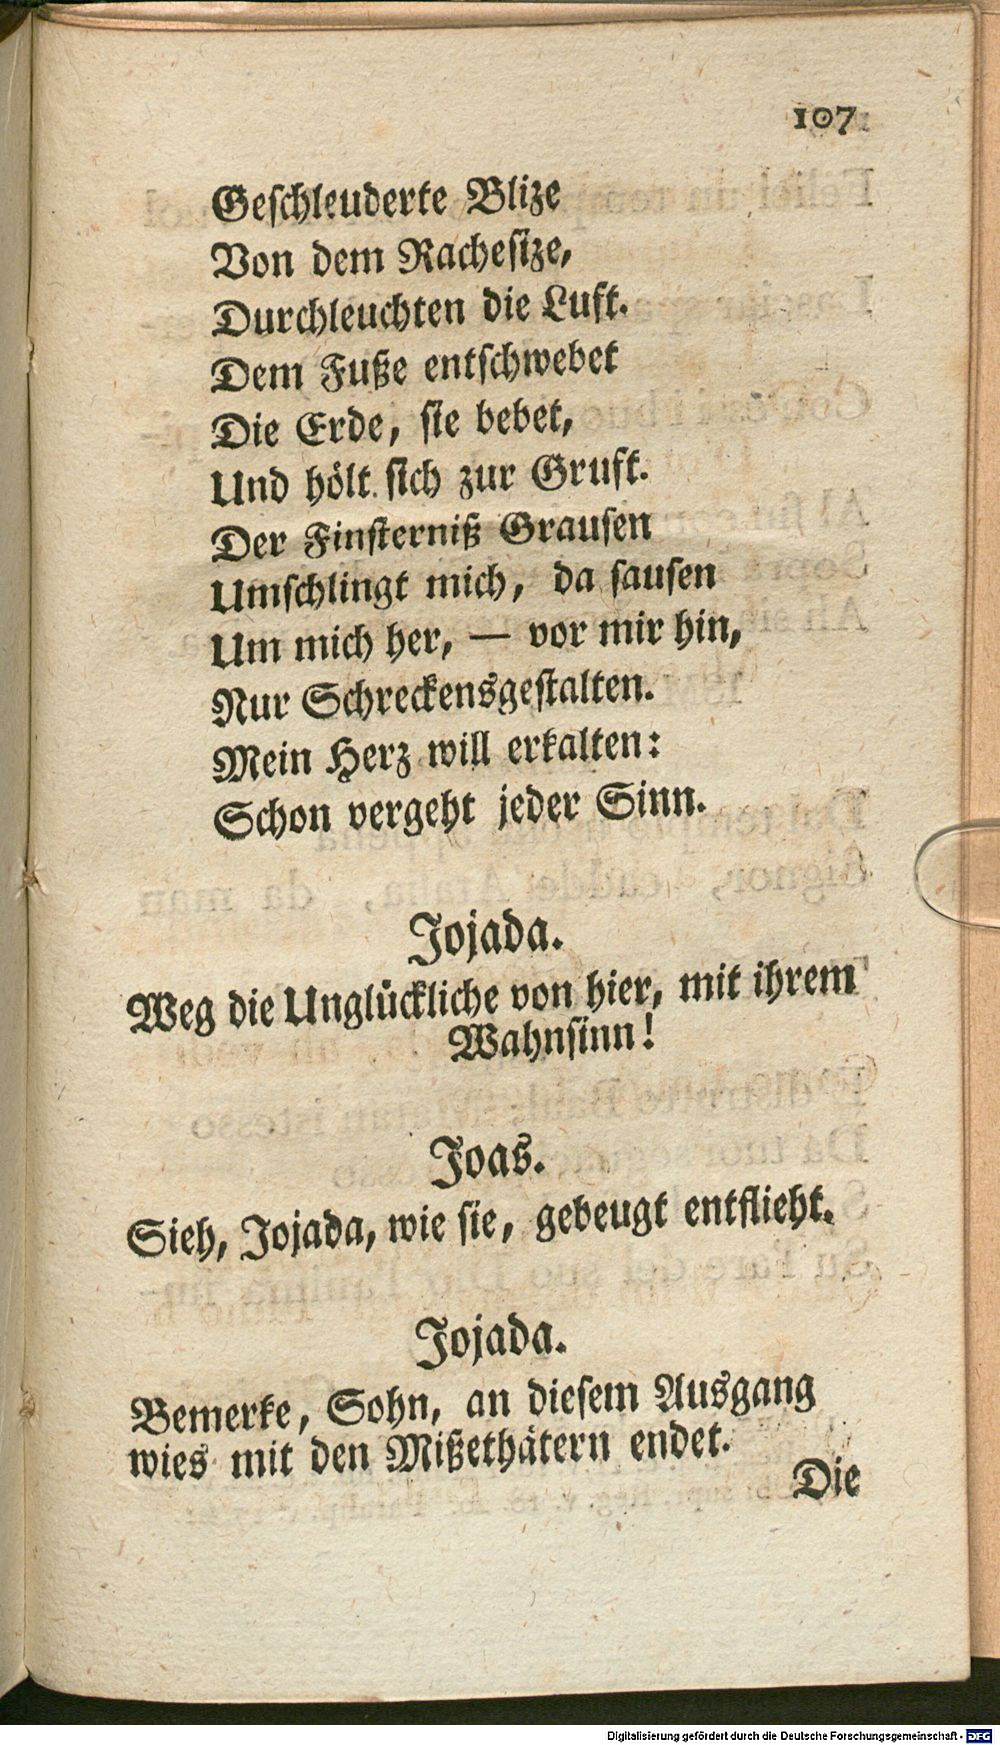 107
Geschleuderte Blize
Von dem Rachesize,
Durchleuchten die Luft.
Dem Fuße entschwebet
Die Erde, sie bebet,
Und hölt sich zur Gruft.
Der Finsterniß Grausen
Umschlingt mich, da sausen
Um mich her, — vor mir hin,
Nur Schreckensgestalten.
Mein Herz will erkalten:
Schon vergeht jeder Sinn.
Jojada.
Weg die Unglückliche von hier, mit ihrem
Wahnsinn!
Joas.
Sieh, Jojada, wie sie, gebeugt entflieht.
Jojada.
Bemerke, Sohn, an diesem Ausgang
wies mit den Mißethätern endet.
Die
Digitalisierung gefördert durch die Deutsche Forschungsgemeinschaft - DFG